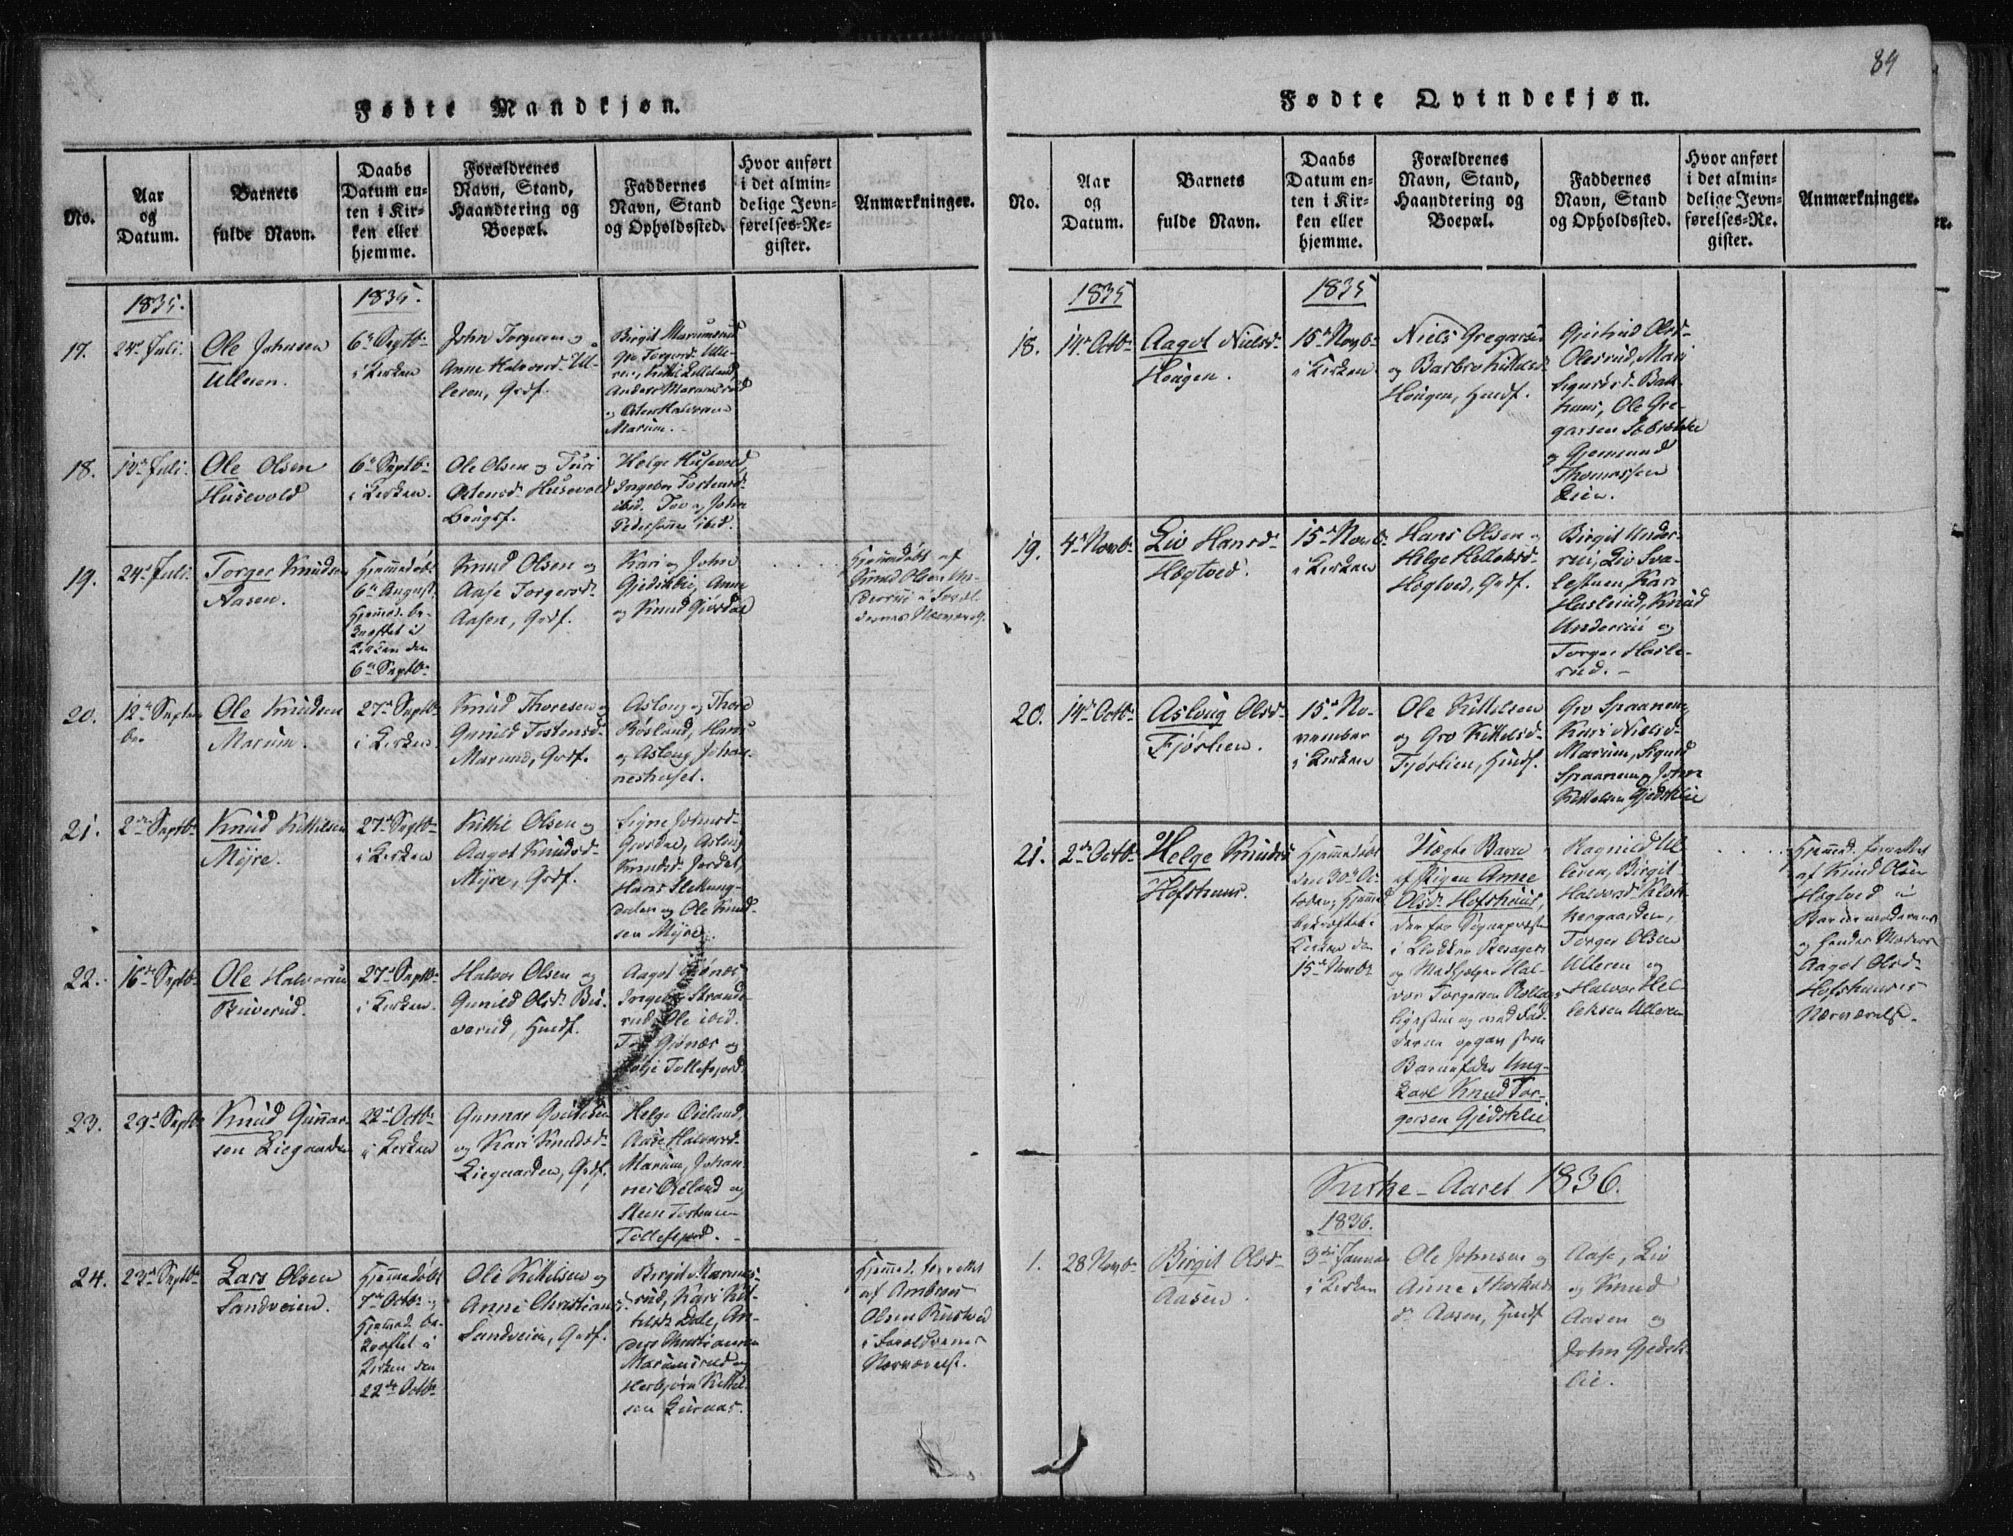 84
Fødte Mandkjøn.
No.
Aar
og
Datum.
Barnets
fulde Navn.
Daabs
Datum en-
ten i Kir-
ken eller
hjemme.
Forældrenes
Navn, Stand,
Haandtering og
Boepæl.
Faddernes
Navn, Stand
og Opholdssted.
Hvor anført
i det almin-
delige Jevn-
førelses-Re-
gister.
Anmærkninger.
1835.
1835.
17.
24de Juli.
Ole Johnsen
Ulleren.
6te Septbr
i Kirken
John Torgersen og
Anne Halvorsd. Ul-
leren, Grdf.
Birgit Marumsrud
Gro Torgersd. Ulle-
ren,
Anders Marumsrud
og Halvorsen
Marum.
18.
Juli.
Ole Olsen
Husevold
6te Septbr
i Kirken.
Ole Olsen og Turi
Ostensd. Husevold
Brugsf.
Helge Husevold,
Ingebor Tostensd.
ibid. Tov og John
Pedersønner ibid.
19.
24de Juli.
Torger Knudsen
Aasen.
Hjemmedøbt
6te August,
Hjemmed. be-
kræftet i
Kirken den
6te Septbr
Knud Olsen og
Aase Torgersd.
Aasen, Grdf.
Kari og John
Gjedsklie, Anne
og Knud Gjordal
Hjemmedøbt af
Knud Olsen Un-
derrui i Foræl-
dernes Nærværelse.
20.
12te Septem-
ber
Ole Knudsen
Marum.
27de Septbr
i Kirken.
Knud Thoresen og
Gunild Tostensd.
Marum, Grdf.
Asloug og Thore
Røsland, Hans
og Asloug Johan-
neshuset.
21.
2den Septbr
Knud Kittilsen
Myre.
27de Septbr
i Kirken
Kittil Olsen og
Aagot Knudsd.
Myre, Grdf.
Signe Johnsd.
Gjordal, Asloug
Knudsd. Jordet,
Hans Slettung-
dalen og Ole Knud-
sen Myre.
22.
16de Septbr
Ole Halvorsen
Buverud.
27de Septbr
i Kirken.
Halvor Olsen og
Gunild Olsd. Bu-
verud, Husf.
Aagot Grønæs
Ingebor Strande-
rud, Ole ibid.
Grønæs og
Tollefsjord.
23.
23de Septbr
Knud Gunnar-
sen Liegaarden
22de Octbr
i Kirken
Gunnar
og Kari Knudsd.
Liegaarden, Grdf.
Helge Øieland,
Aase Halvorsd.
Marum, Johan-
nes Øieland og
Steen Tostensen
Tollefsjord.
24.
23de Septbr
Lars Olsen
Sandveien.
Hjemmedøbt
7de Octbr og
Hjemmed. be-
kræftet i
Kirken den
22de Octbr
Ole Kittilsen og
Anne Christians-
d. Sandveien, Grdf.
Birgit Marums-
rud, Kari Kit-
tilsd. Dale, An-
ders Christiansen
Marumsrud og
Herbjørn Kittil-
sen Liernæs.
Hjemmed. forrettet
af Ambros
Olsen Rustved
i Forældrenes
Nærværelse.
Fødte Qvindekjøn.
No.
Aar
og
Datum.
Barnets
fulde Navn.
Daabs
Datum en-
ten i Kir-
ken eller
hjemme.
Forældrenes
Navn, Stand,
Haandtering og
Boepæl.
Faddernes
Navn, Stand
og Opholdssted.
Hvor anført
i det almin-
delige Jevn-
førelses-Re-
gister.
Anmærkninger.
1835
1835
18.
14de Octbr
Aagot Nielsd.
Hougen.
15de Novbr
i Kirken
Niels Gregarsen
og Barbro Kittilsd.
Hougen, Husf.
Gjertrud Olsd.
Olesrud, Mari
Sigurdsd. Bak-
huus, Ole Gre-
garsen
og Gjermund
Thomassen
Lien.
19.
4de Novbr
Liv Hansd.
Høgtved.
15de Novbr
i Kirken
Hans Olsen og
Helge Helleksd.
Høgtved, Grdf.
Birgit Under-
rui, Liv Sva-
lestuen, Kari
Haslerud, Knud
Underrui og
Torger Hasle-
rud.
20.
14de Octbr
Asloug Olsd.
Fjøslien.
15de No-
vember
i Kirken
Ole Kittilsen
og Gro Kittilsd.
Fjøslien, Husf.
Gro Spaanem,
Kari Nielsd.
Marum, Sigurd
Spaanem og John
Kittelsen Gjedsklie
21.
2den Octbr
Helge Knudsd.
Hofshuus.
Hjemmedøbt
den 30te Oc-
tober, Hjemmed.
bekræftet i
Kirken den
15de Novbr
Uægte Barn
af Pigen Anne
Olsd. Hofshuus,
der for Sognepræst
i
og Medhjelper Hal-
vor Torgersen
og ved Fad-
derne opgav som
Barnefader Ung-
karl Knud Tor-
gersen Gjedsklie
Ragnild Ul-
leren, Birgit
Halvorsd. Klok-
kergaarden,
Torger Olsen
Ulleren og
Halvor Hel-
leksen Ulleren
Hjemmed. forrettet
af Knud Olsen
Høgtved i
Barnemoderens
og hendes Moders
Aagot Olsd.
Hofshuuses
Nærværelse.
Kirke-Aaret 1836.
1836.
1.
28 Novbr
Birgit Olsd.
Aasen.
3die Januar
i Kirken
Ole Johnsen og
Anne
d. Aasen, Husf
Aase, Liv
og Knud
Aasen og
John Gjedsk-
lie.